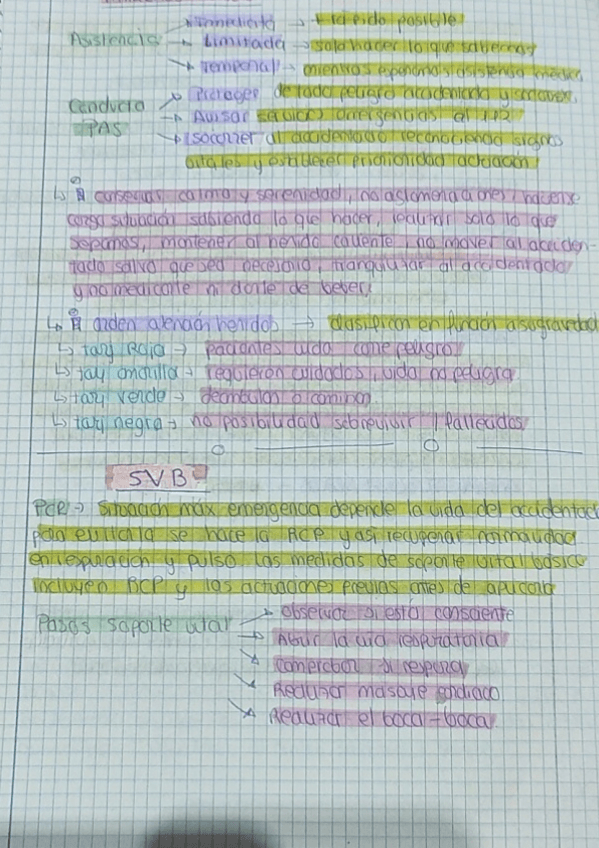 → Inmediata → + rápido posible
Asistencia → Limitada → solo hacer lo que sabemos
→ Temporal → mientras esperamos asistencia médica
Conducta → Proteger de todo peligro accidentado y
PAS → Avisar servicios emergencias al 112
→ Socorrer al accidentado reconociendo signos
vitales y establecer prioridad actuación
↳ conservar calma y serenidad, no aglomeraciones, hacerse
cargo situación sabiendo lo que hacer, realizar solo lo que
sepamos, mantener al herido caliente, no mover al acciden-
tado salvo que sea necesario, tranquilizar al accidentado
y no medicarle ni darle de beber.
↳ orden atención heridos → clasifican en función a su gravedad
↳ tarj Roja → pacientes vida corre peligro
↳ tarj amarilla → requieren cuidados, vida no peligra
↳ tarj verde → deambulan o caminan
↳ tarj negra → no posibilidad sobrevivir / fallecidos
SVB
PCR → Situación máx emergencia depende la vida del accidentado
para evitarla se hace la RCP y así recuperar normalidad
en respiración y pulso. Las medidas de soporte vital básico
incluyen RCP y las actuaciones previas antes de aplicarla
→ observar si está consciente
Pasos soporte vital → Abrir la vía respiratoria
→ Comprobar si respira
→ Realizar masaje cardiaco
→ Realizar el boca-boca.